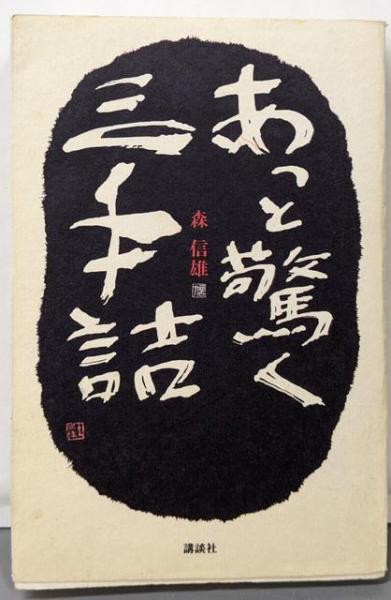 あっと驚く
三手詰
森信雄
講談社